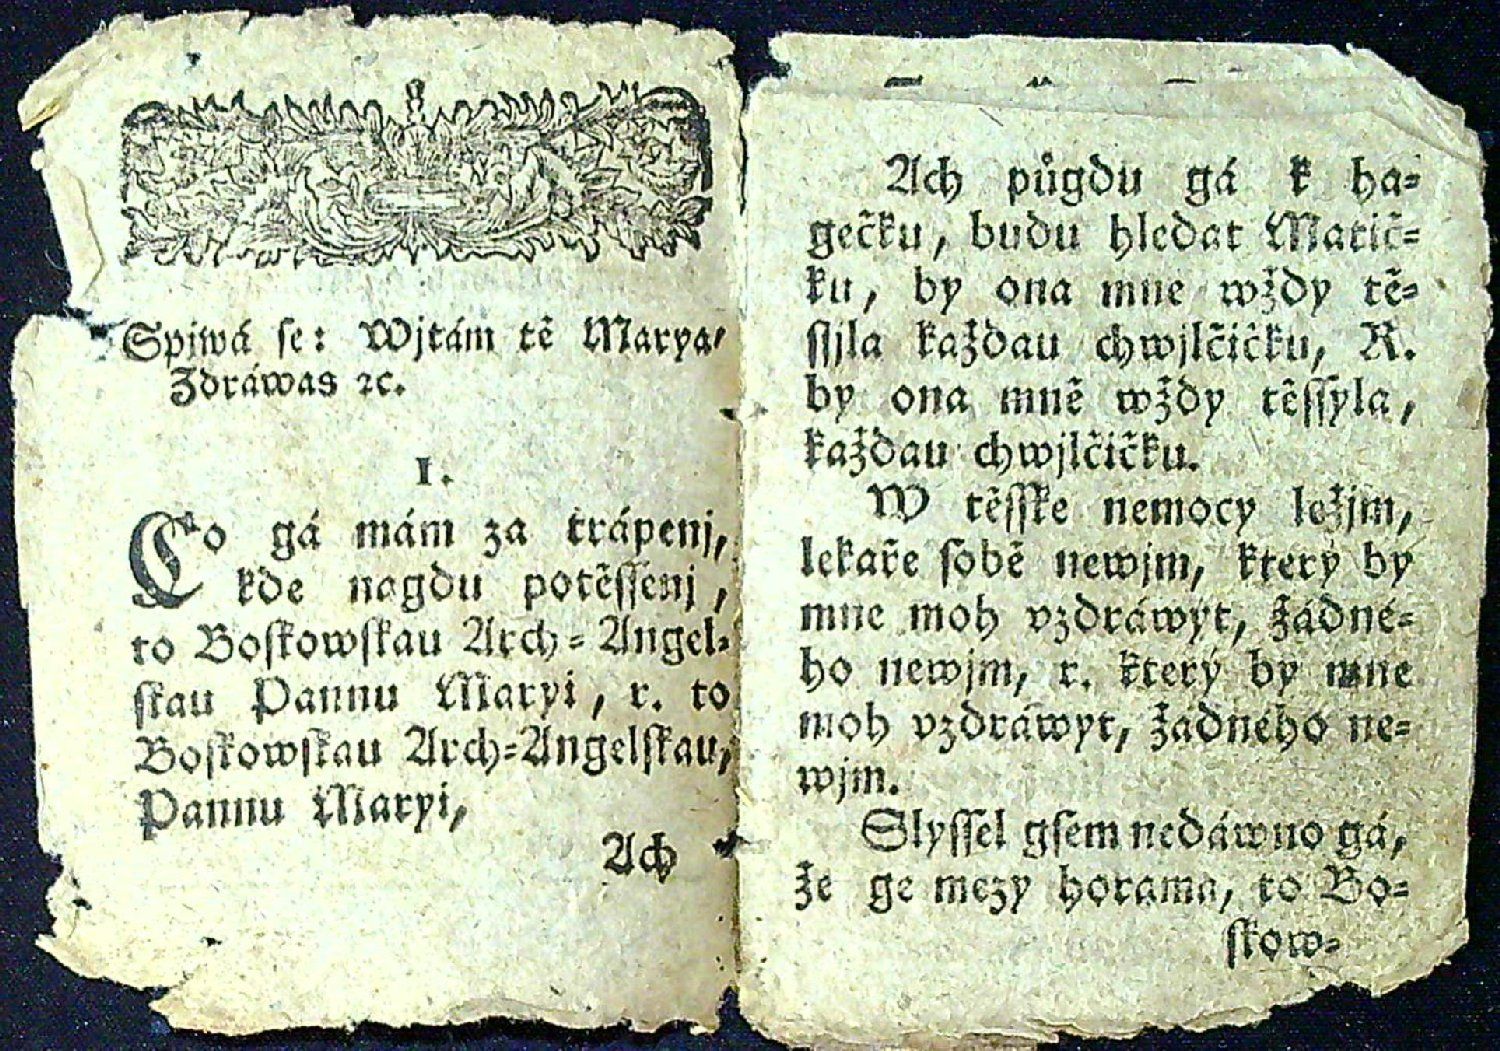 Spjwá se: Wjtám tě Marya,
Zdráwas ꝛc.
I.
Co gá mám za trápenj,
kde nagdu potěſſenj,
to Boſkowſkau Arch-Angel-
ſkau Pannu Maryi, r. to
Boſkowſkau Arch-Angelſkau,
Pannu Maryi,
Ach
Ach půgdu gá k ha-
gečku, budu hledat Matič-
ku, by ona mne wždy tě-
ſſjla každau chwjlčičku, R.
by ona mně wždy těſſyla,
každau chwjlčičku.
W těſſke nemocy ležjm,
lekaře ſobě newjm, který by
mne moh vzdráwyt, žádné-
ho newjm, r. který by mne
moh vzdráwyt, žádného ne-
wjm.
Slyſſel gſem nedáwno gá,
že ge mezy horama, to Bo-
ſkow-